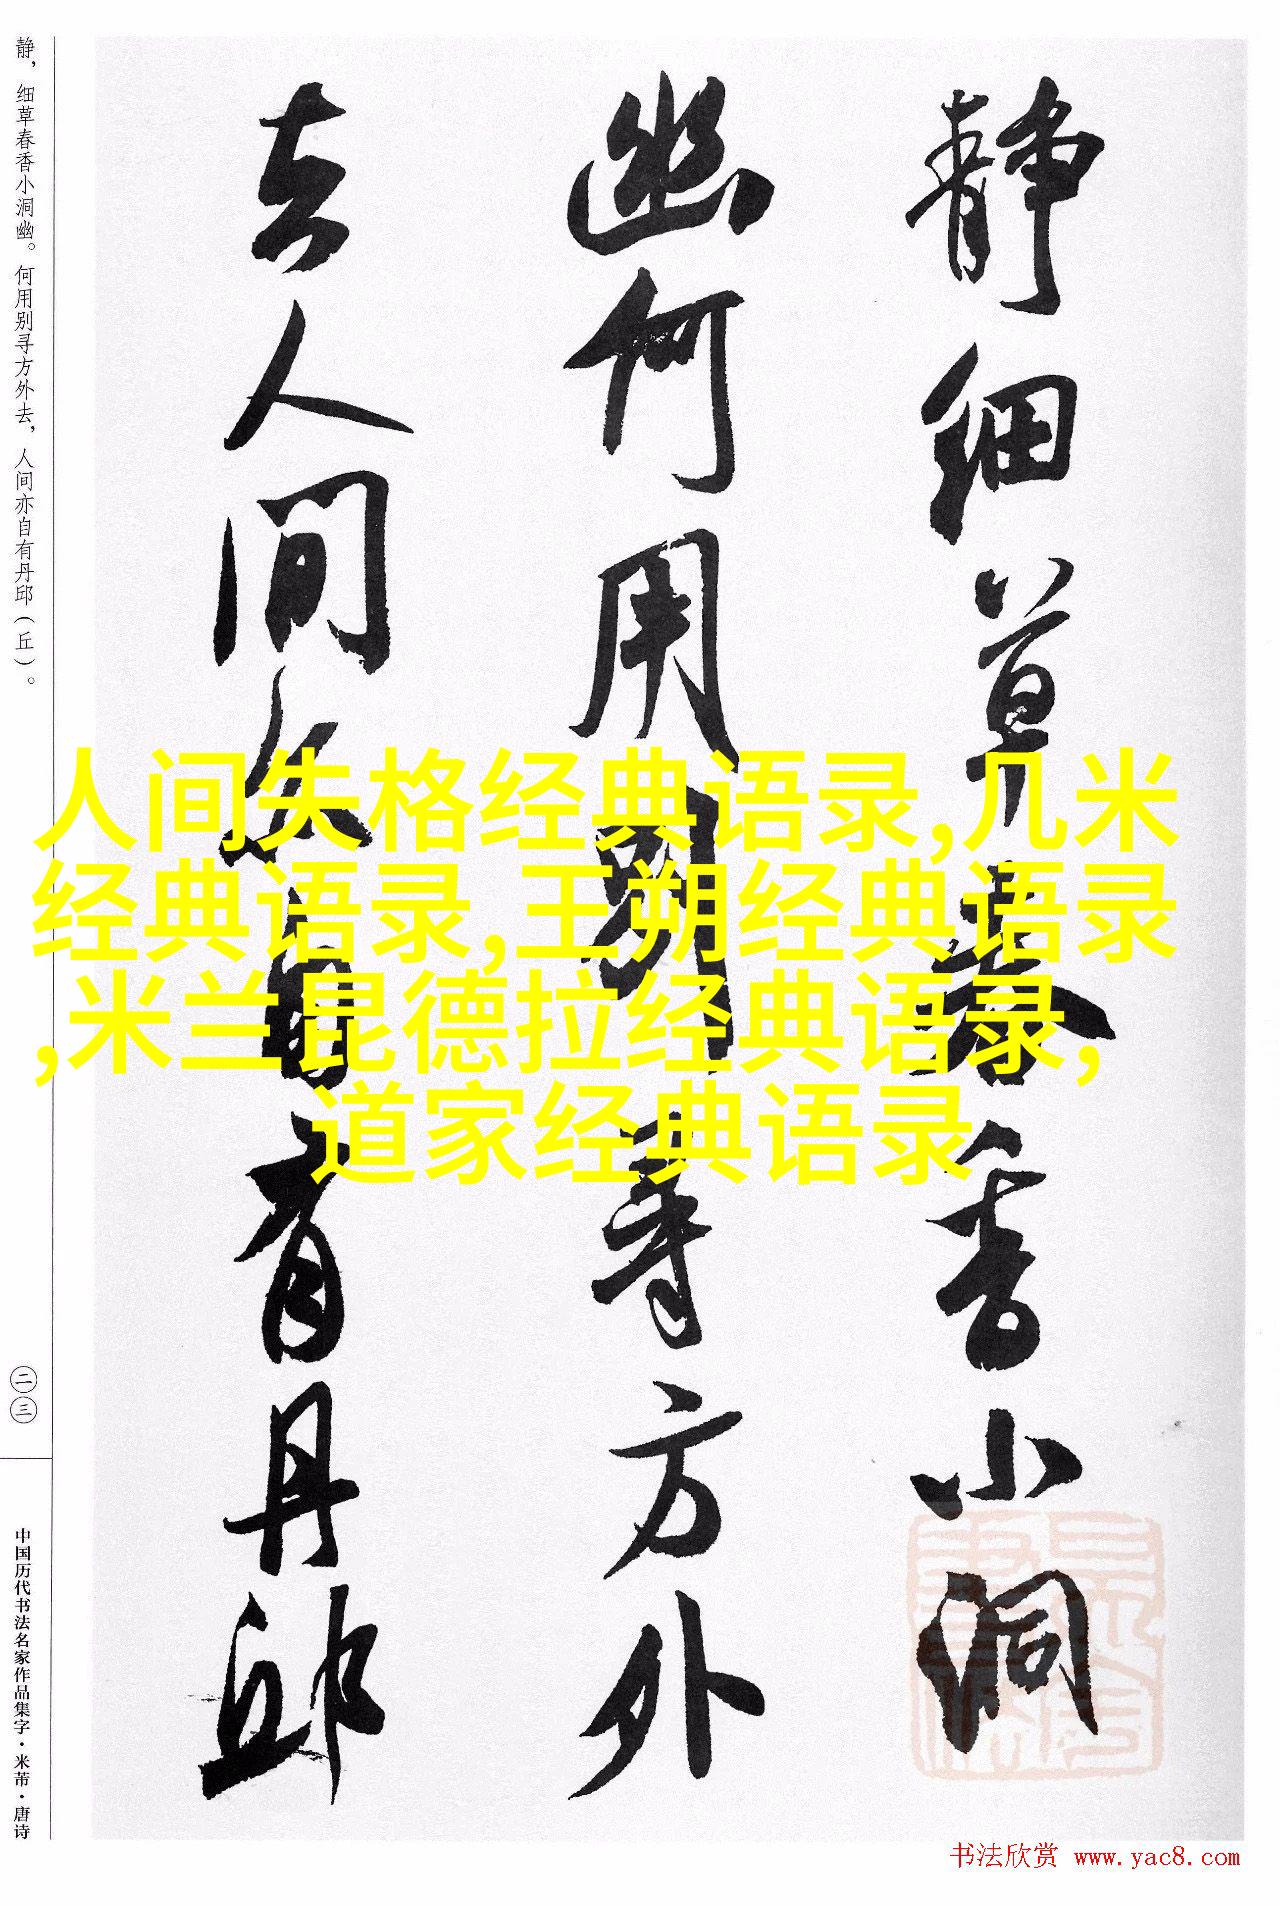 静细草春香小洞
幽何用别寻方外
去人间亦自有丹邱
静，细草春香小洞幽。何用别寻方外去，人间亦自有丹邱（丘）。
二三
中国历代书法名家作品集字·米芾·唐诗
人间失格经典语录,几米
经典语录,王朔经典语录
,米兰昆德拉经典语录,
道家经典语录
书法欣赏 www.yac8.com